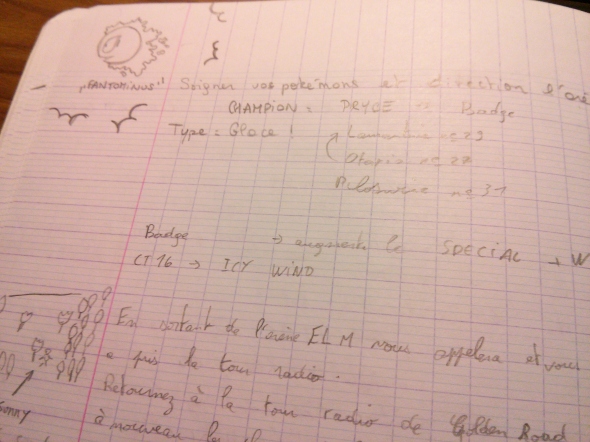 "FANTOMINUS"
Soigner vos pokémons et direction l'arè
CHAMPION = PRYCE Badge
Type = Glace ! Lamantine nc 29
Otaria nc 27
Piloswine nc 31
Badge → augmente le SPECIAL + W
CT 16 → ICY WIND
En sortant de l'arène ELM vous appelera et vous
a pris la tour radio.
Retournez à la tour radio de Golden Road
à nouveau le
Sunny